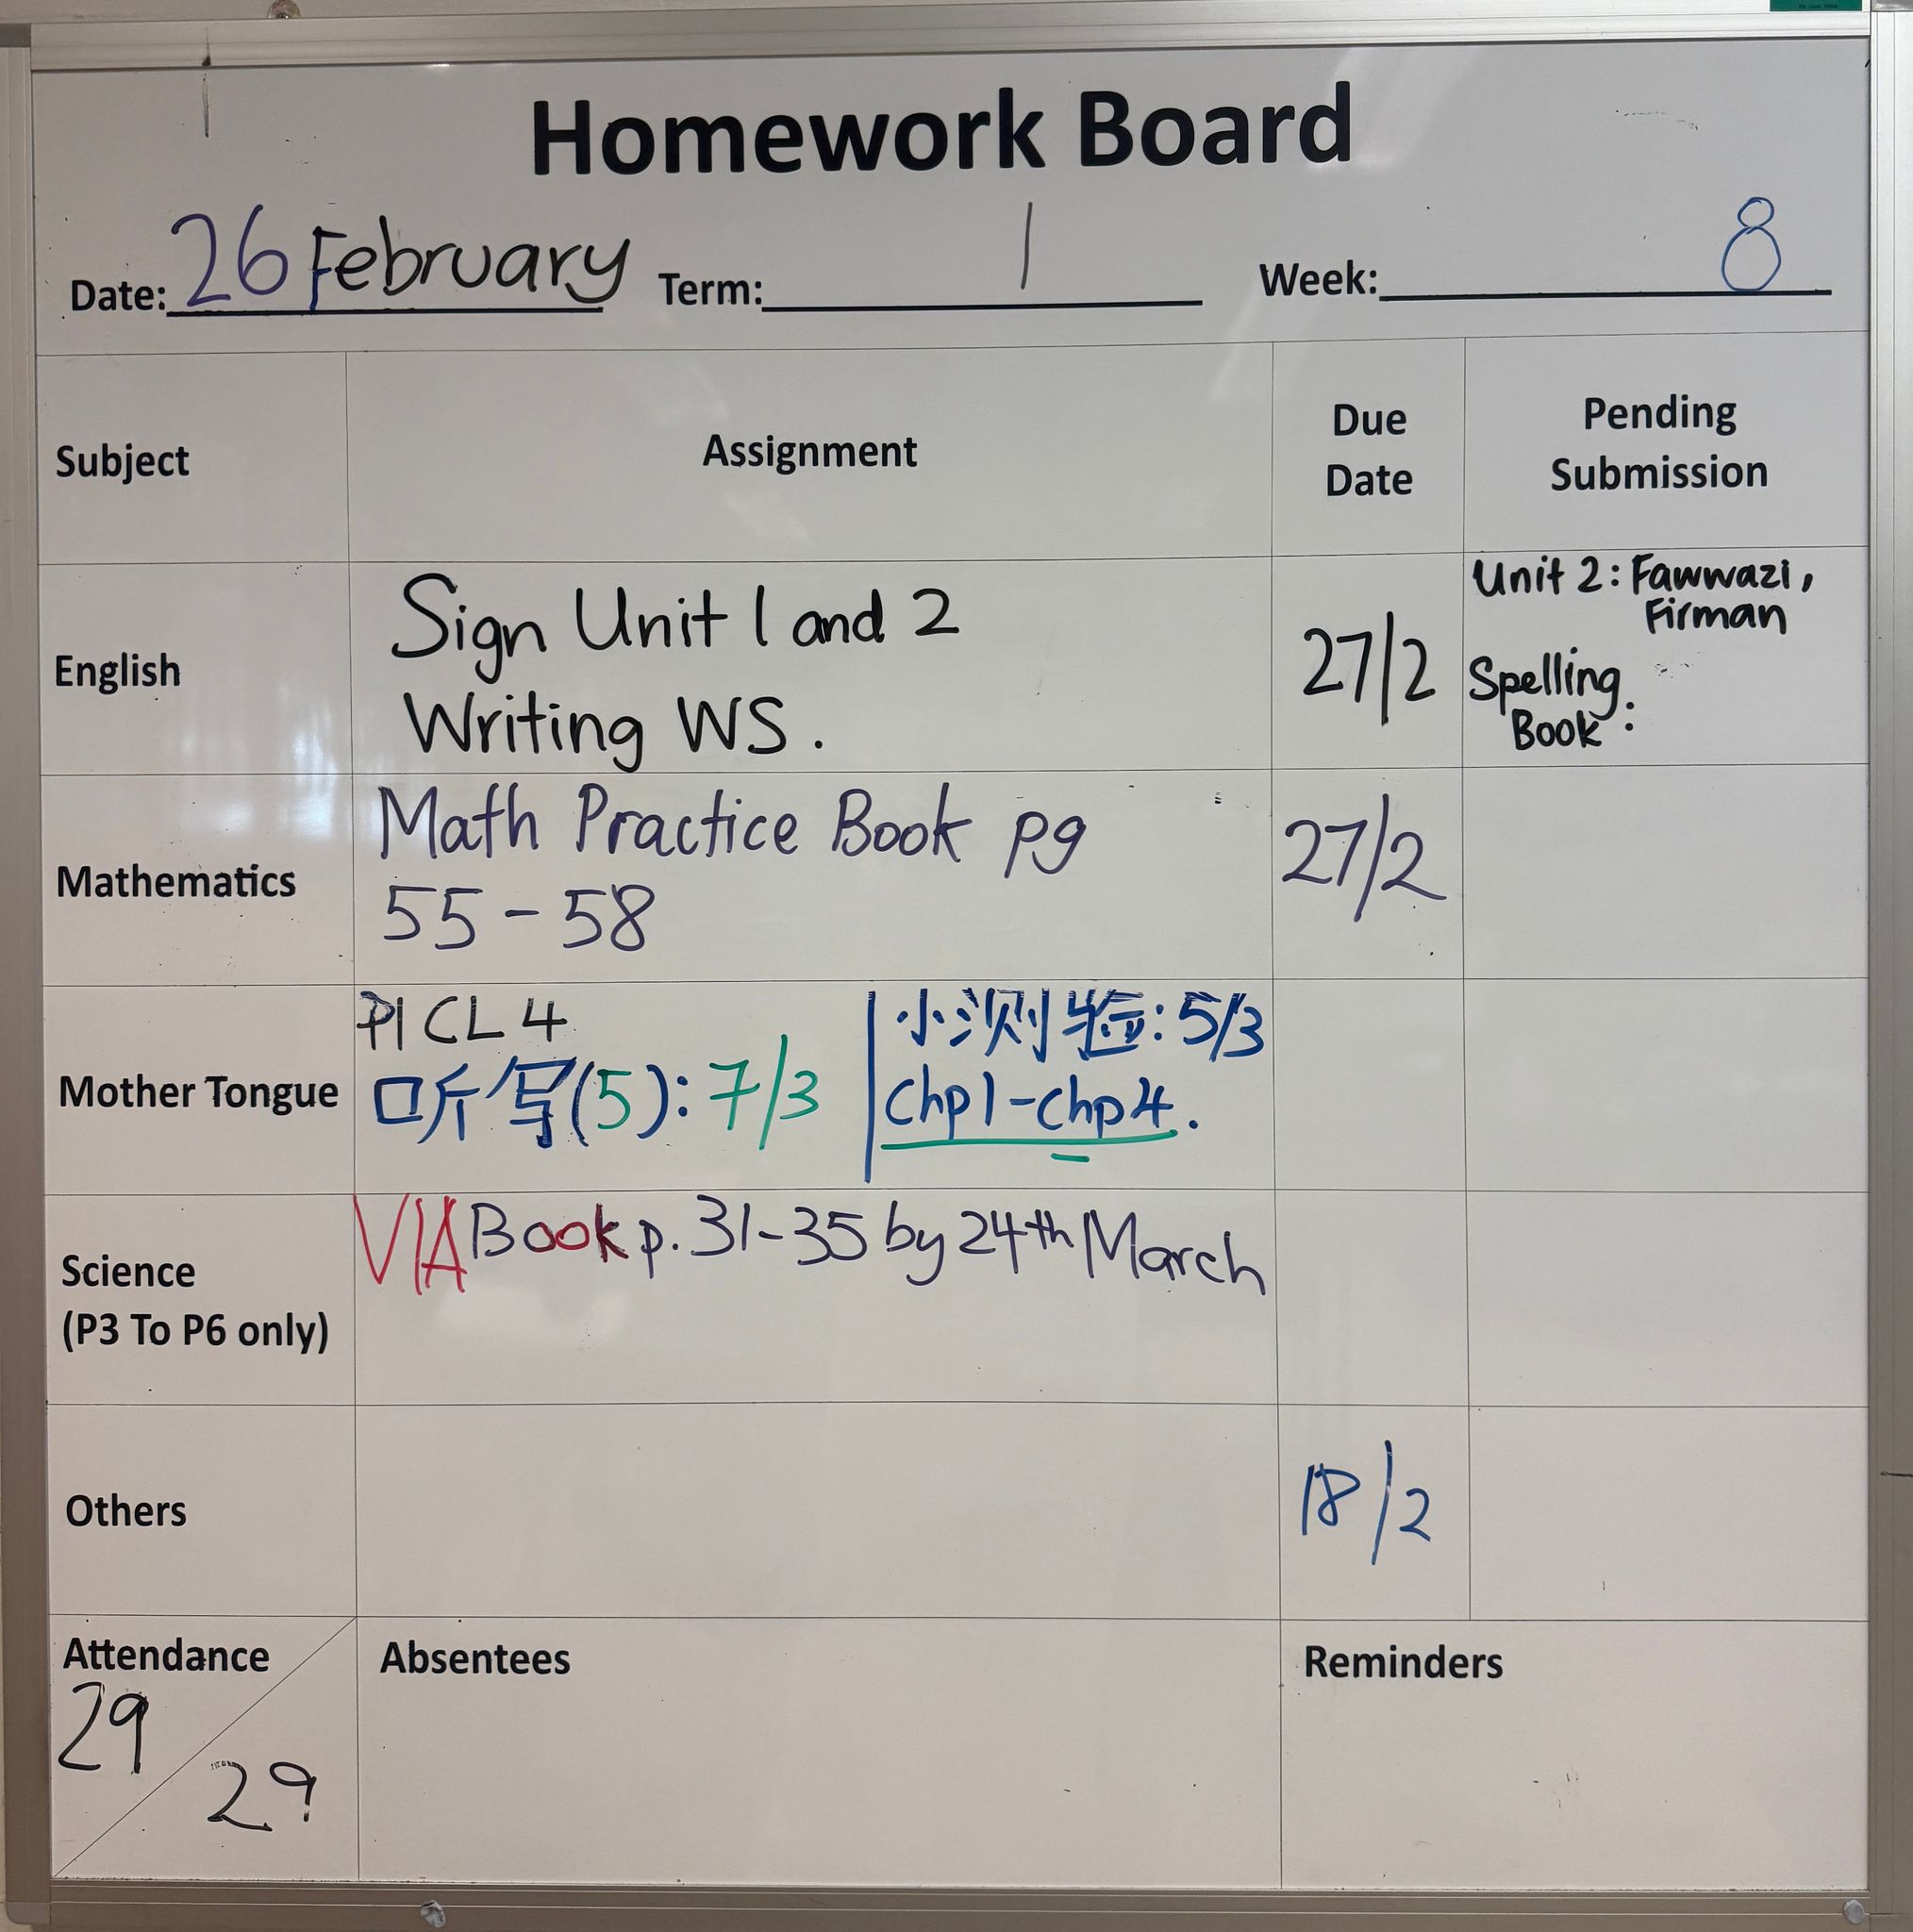 Homework Board
Date: 26 February Term: 1 Week: 8
Subject Assignment Due Date Pending Submission
English
Sign Unit 1 and 2
Writing WS.
27/2
Unit 2: Fawwazi,
Firman
Spelling
Book :
Mathematics
Math Practice Book pg
55 - 58
27/2
Mother Tongue
CL 4
听写(5): 7/3
小测验: 5/3
Chp1-Chp4.
Science
(P3 To P6 only)
VIA Book p. 31-35 by 24th March
Others
18/2
Attendance
29
29
Absentees
Reminders